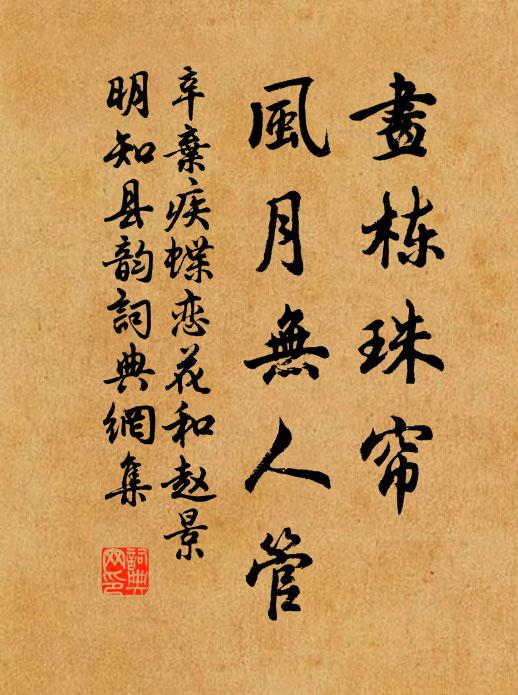 畫栋珠帘
風月無人管
辛棄疾蝶恋花和赵景
明知县韵詞典網集
詞典
网印